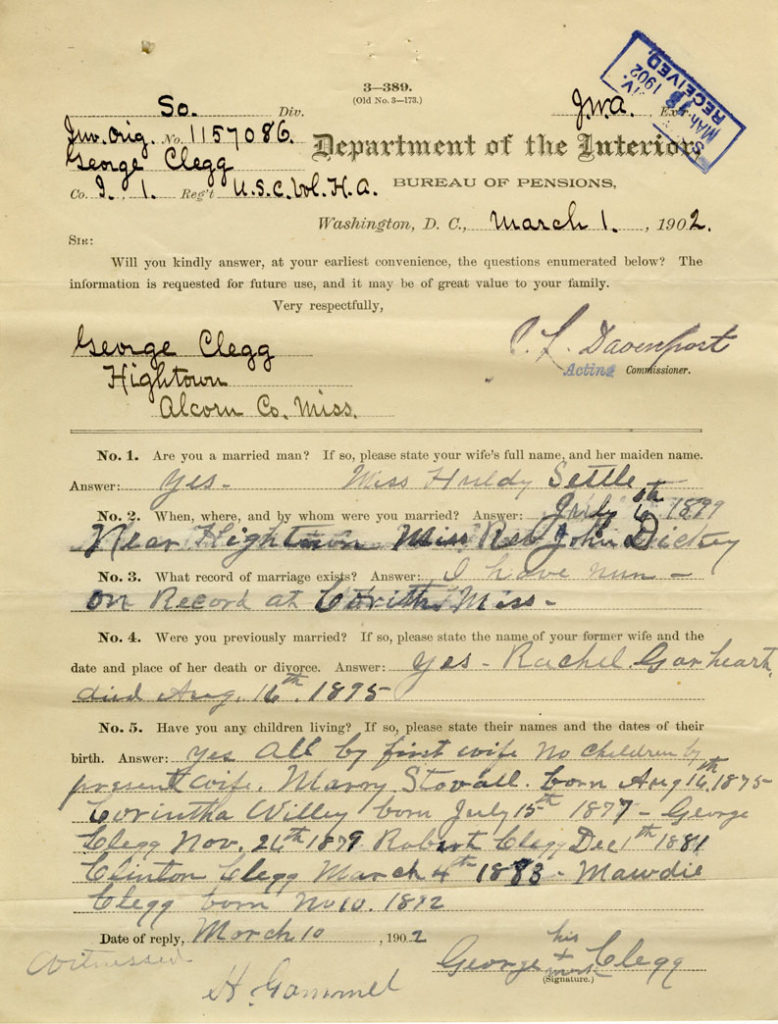 3—389.
(Old No. 3—173.)
So. Div.
J.W.A. Ex
RECEIVED
1902
Inv. Orig. No. 1157086.
George Clegg
Co. I., 1. Reg't U.S.C. Vol. H.A.
Department of the Interior,
BUREAU OF PENSIONS,
Washington, D. C., March 1., 1902.
SIR:
Will you kindly answer, at your earliest convenience, the questions enumerated below? The
information is requested for future use, and it may be of great value to your family.
Very respectfully,
C. L. Davenport
Acting Commissioner.
George Clegg
Hightown
Alcorn Co. Miss.
No. 1. Are you a married man? If so, please state your wife's full name, and her maiden name.
Answer: Yes - Miss Huldy Settle -
No. 2. When, where, and by whom were you married? Answer: July 6th 1899
Near Hightown Miss Rev John Dickey
No. 3. What record of marriage exists? Answer: I have nun -
on Record at Corith Miss -
No. 4. Were you previously married? If so, please state the name of your former wife and the
date and place of her death or divorce. Answer: Yes - Rachel Garheart
died Aug. 16th. 1895
No. 5. Have you any children living? If so, please state their names and the dates of their
birth. Answer: Yes All by first wife no children by
present wife. Marry Stovall. born Aug 16th. 1875 -
Corintha Willey born July 15th 1877 - George
Clegg Nov. 26th 1879 Robert Clegg Dec 1th 1881
Clinton Clegg March 4th 1883 - Mawdie
Clegg born No 10. 1892
Date of reply, March 10, 1902
Witnessed
H. Gammel
George his + mark Clegg
(Signature.)